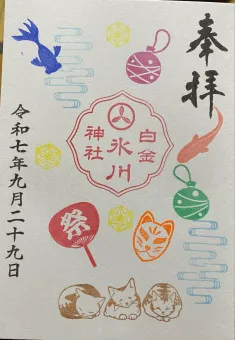 奉拝
白金
氷川
神社
祭
令和七年九月二十九日